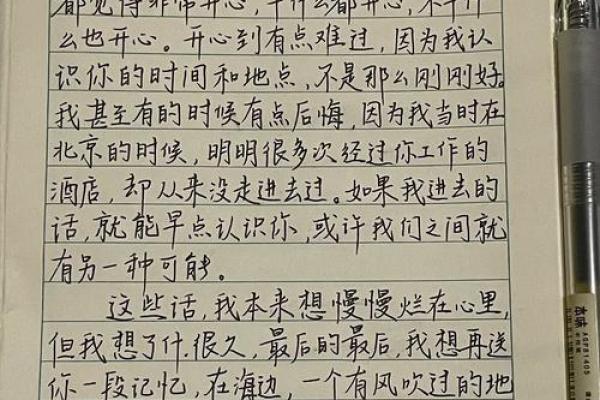 都觉得非常开心，干什么都开心，不干什
么也开心。开心到有点难过，因为我认
识你的时间和地点，不是那么刚刚好。
我甚至有的时候有点后悔，因为我当时在
北京的时候，明明很多次经过你工作的
酒店，却从来没走进去过。如果我进去的
话，就能早点认识你，或许我们之间就
有另一种可能。
这些话，我本来想慢慢烂在心里，
但我想了什.很久，最后的最后，我想再送
你一段记忆，在海边，一个有风吹过的地
本味 AGPB1405